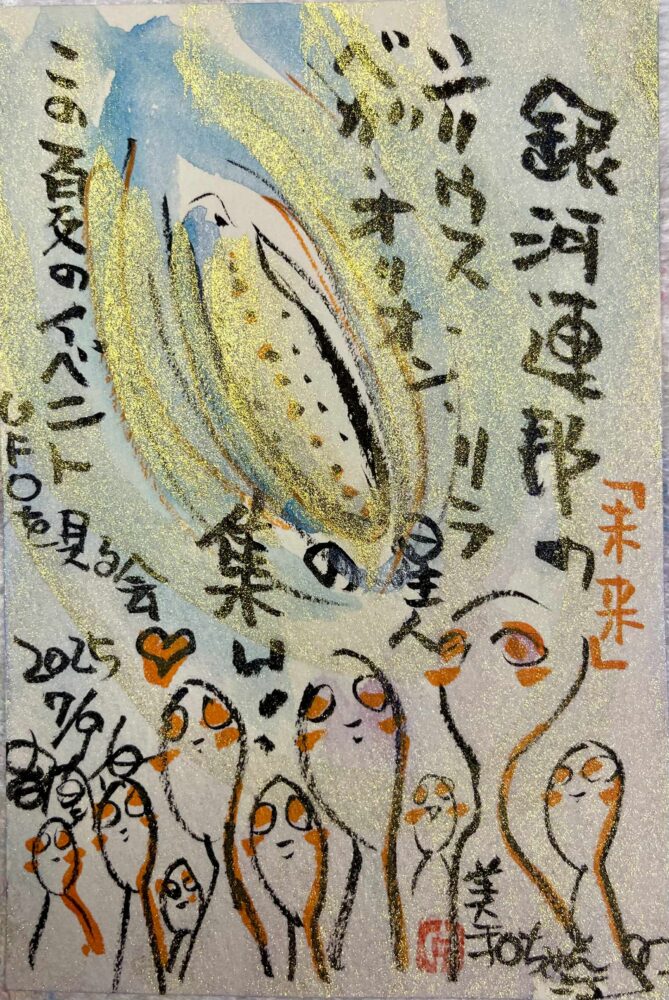 銀河連邦の
「未来」
シリウス、リラ
ベガ・オリオン
星人の集い!
この夏のイベント
UFOを見る会
2025
美和